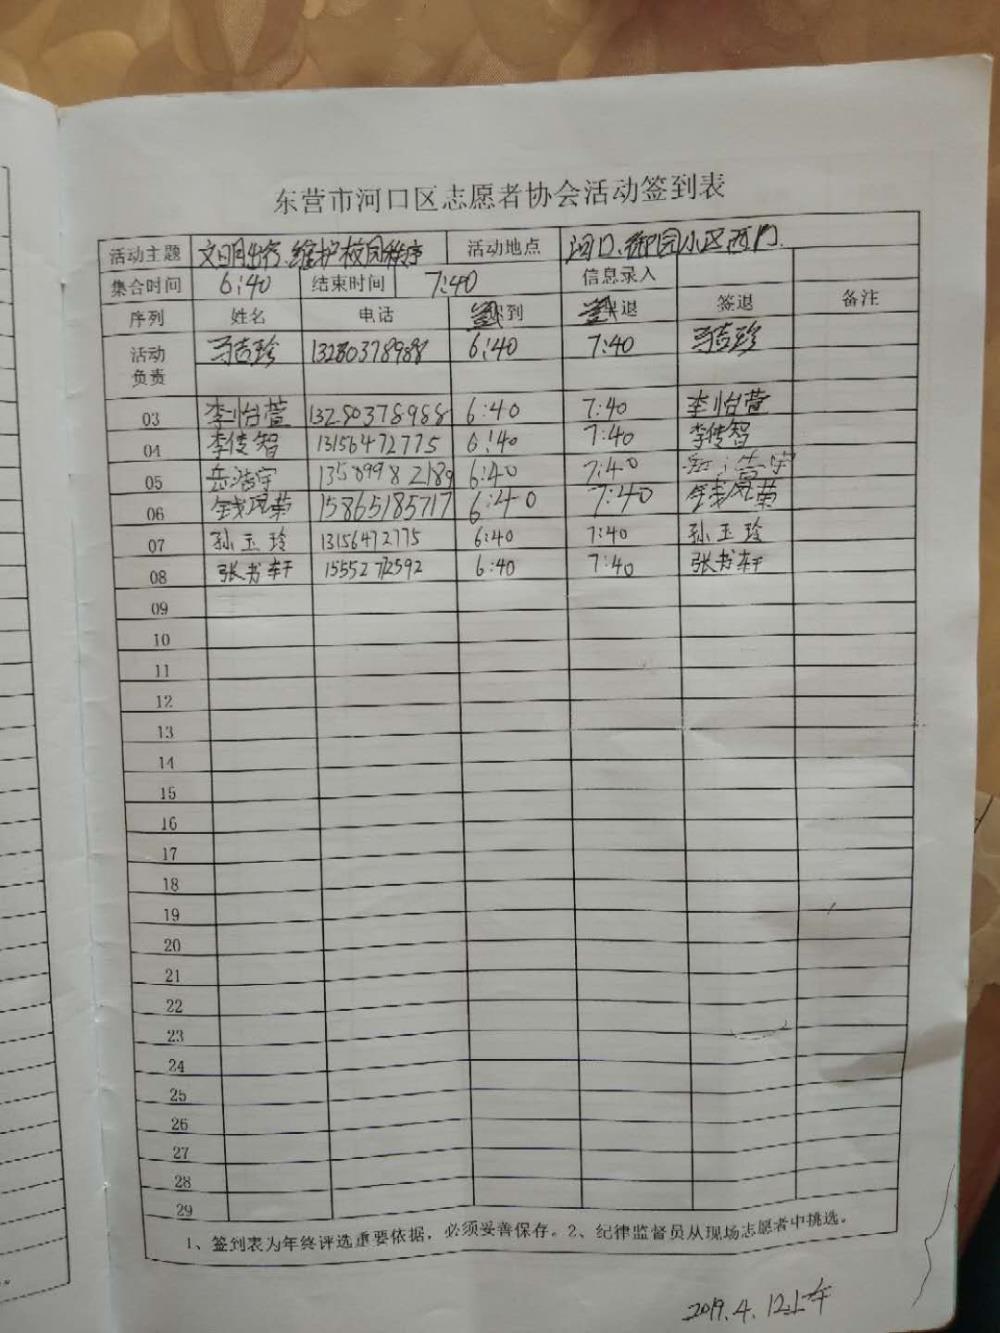 东营市河口区志愿者协会活动签到表
活动主题 文明出行.维护校园秩序 活动地点 河口.御园小区西门.
集合时间 6:40 结束时间 7:40 信息录入
序列 姓名 电话 签到 签退 签退 备注
活动负责 马吉珍 13280378988 6:40 7:40 马吉珍
03 李怡萱 13280378988 6:40 7:40 李怡萱
04 李传智 13156472775 6:40 7:40 李传智
05 岳浩宇 13589982189 6:40 7:40 岳浩宇
06 钱凤菊 15865185717 6:40 7:40 钱凤菊
07 孙玉玲 13156472775 6:40 7:40 孙玉玲
08 张书轩 15552772592 6:40 7:40 张书轩
09
10
11
12
13
14
15
16
17
18
19
20
21
22
23
24
25
26
27
28
29
1、签到表为年终评选重要依据，必须妥善保存。2、纪律监督员从现场志愿者中挑选。
2019.4.12上午